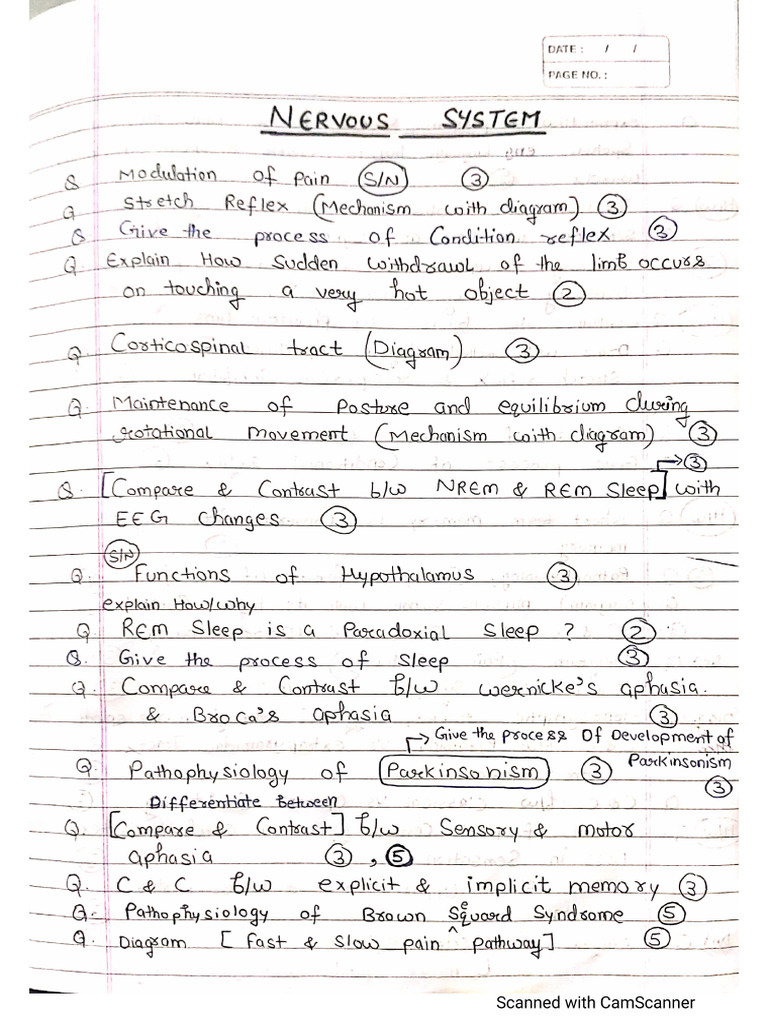 DATE : / /
PAGE NO. :
NERVOUS SYSTEM
Q Modulation of Pain (S/N) (3)
Q Stretch Reflex (Mechanism with diagram) (3)
Q Give the process of Condition reflex (3)
Q Explain How Sudden withdrawl of the limb occurs
on touching a very hot object (2)
Q. Corticospinal tract (Diagram) (3)
Q. Maintenance of Posture and equilibrium during
rotational movement (Mechanism with diagram) (3)
→ (3)
Q. [Compare & Contrast b/w NREM & REM Sleep] with
EEG Changes (3)
(S/N)
Q. Functions of Hypothalamus (3)
explain How/why
Q REM Sleep is a Paradoxial Sleep ? (2)
Q. Give the process of Sleep (3)
Q. Compare & Contrast b/w wernicke's aphasia.
& Broca's aphasia (3)
→ Give the process Of Development of
Parkinsonism
(3)
Q. Pathophysiology of Parkinsonism (3)
Differentiate Between
Q. [Compare & Contrast] b/w Sensory & motor
aphasia (3) , (5)
Q. C & C b/w explicit & implicit memory (3)
Q. Pathophysiology of Brown Sequard Syndrome (5)
Q. Diagram [fast & slow pain pathway] (5)
Scanned with CamScanner